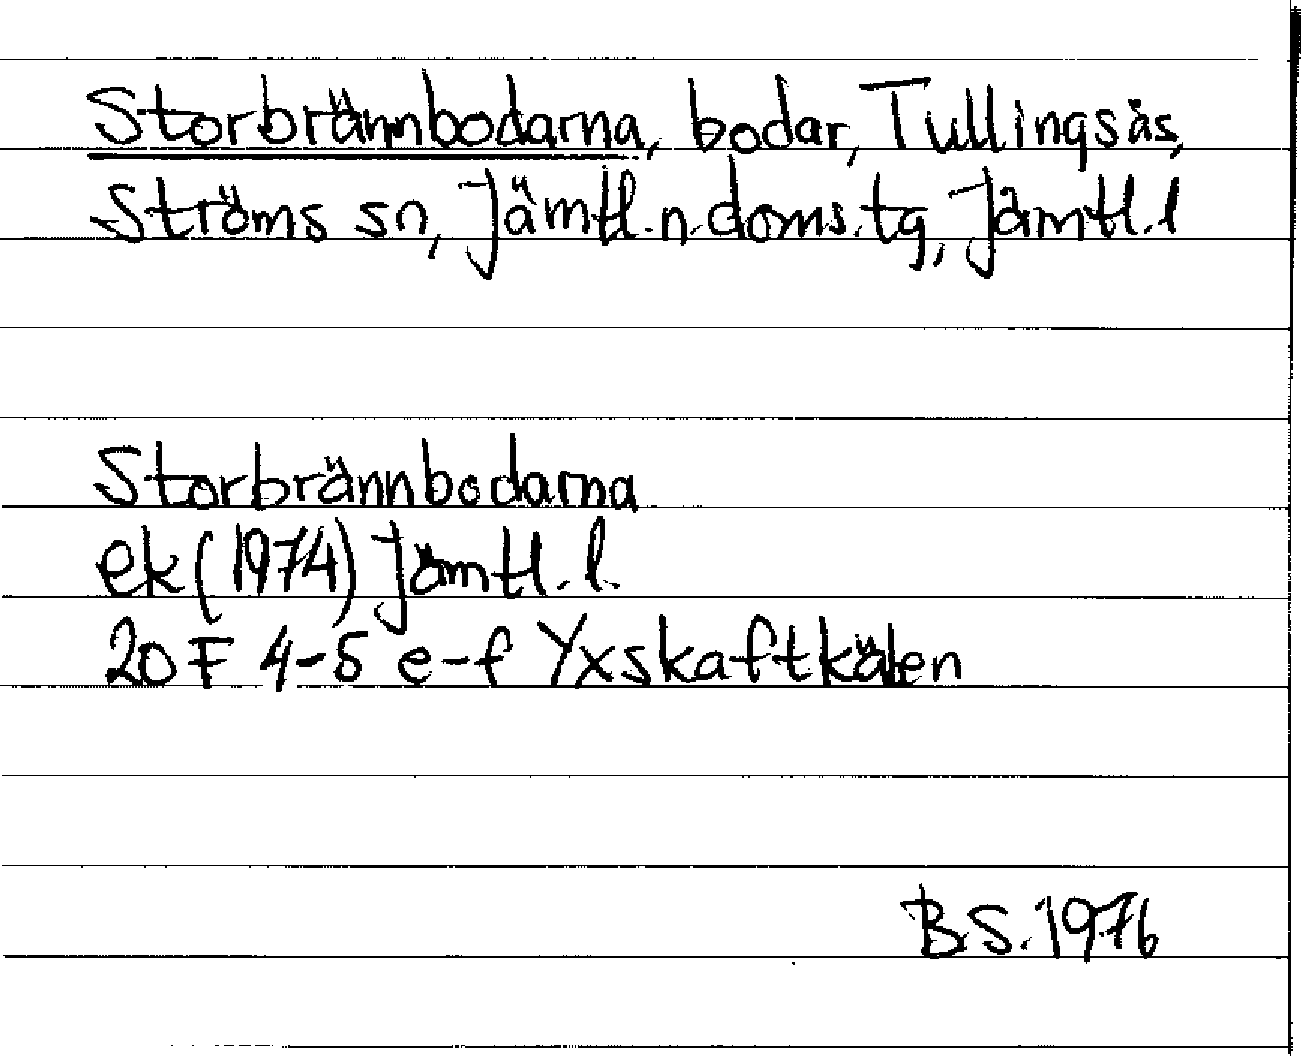 Storbrännbodarna, bodar, Tullingsås,
Ströms sn, Jämtl.n.doms.tg, Jämtl.l
Storbrännbodarna
ek (1974) Jämtl.l.
20 F 4-5 e-f Yxskaftkälen
B.S. 1976